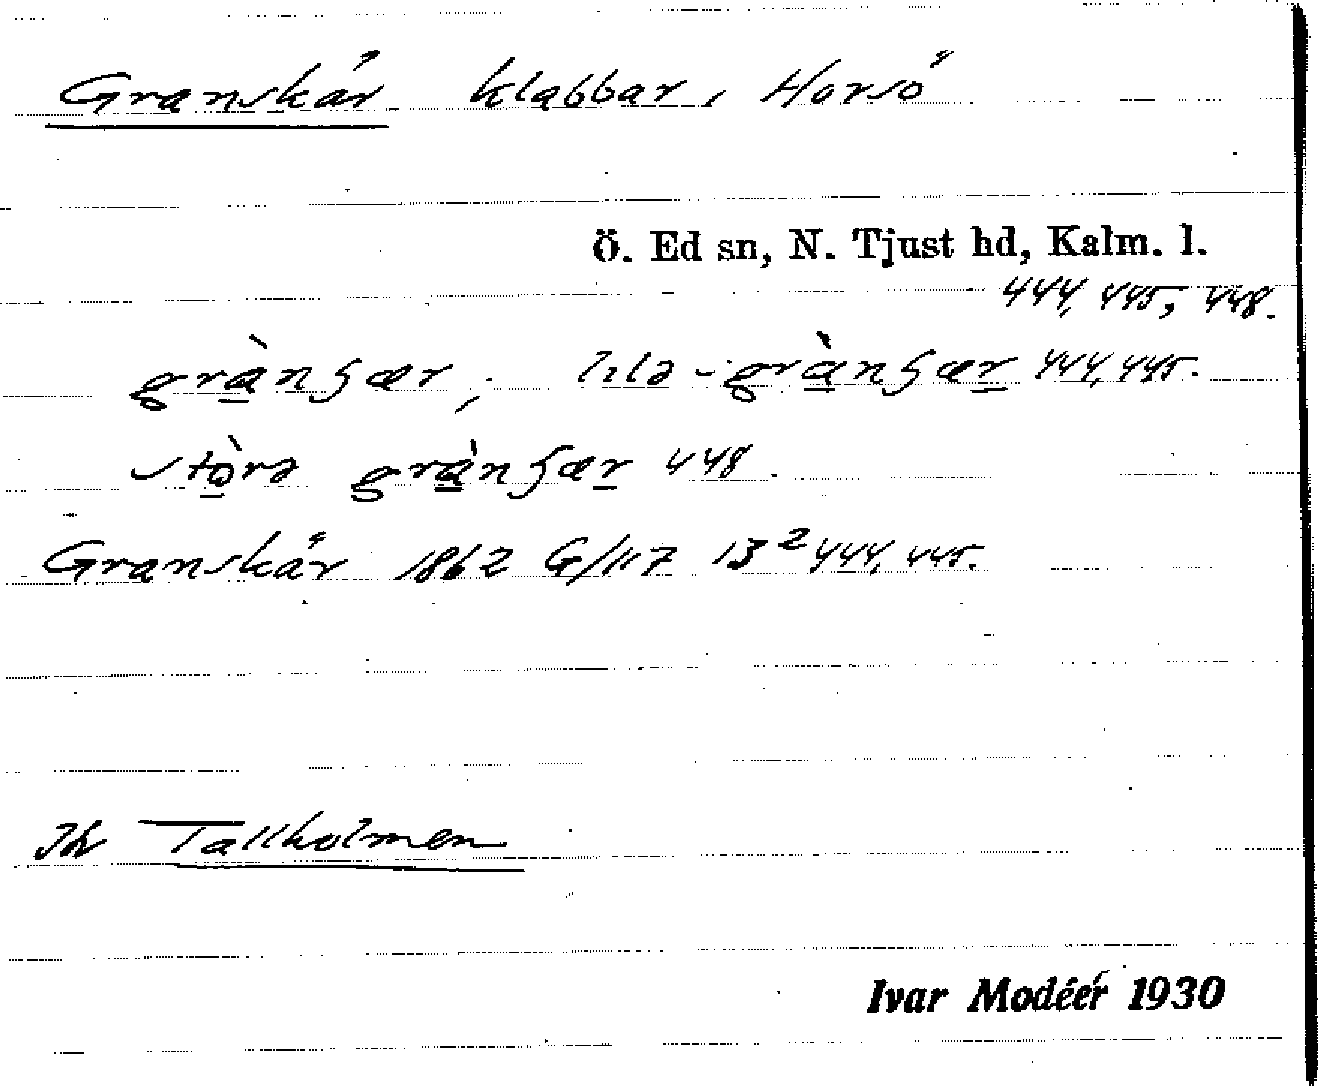 Granskär klabbar, Horsö
Ö. Ed sn, N. Tjust hd, Kalm. l.
444, 445, 448.
grà̠nʃær, lɩlə-grà̠nʃær̠ 444, 445.
stò̠rə grà̠nʃær̠ 448.
Granskär 1862 G/117 13² 444, 445.
Tallholmen
Ivar Modéer 1930